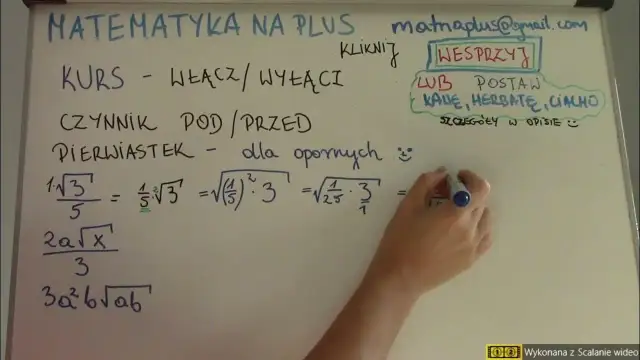 MATEMATYKA NA PLUS
matnaplus@gmail.com
KLIKNIJ
WESPRZYJ
LUB POSTAW
KAWĘ, HERBATĘ, CIACHO
SZCZEGÓŁY W OPISIE :)
KURS - WŁĄCZ/WYŁĄCZ
CZYNNIK POD/PRZED
PIERWIASTEK - dla opornych :)
1·√3/5 = 1/5·²√3 = √((1/5)²·3) = √(1/25·3/1) =
2a√x/3
3a²b√ab
Wykonana z Scalanie wideo